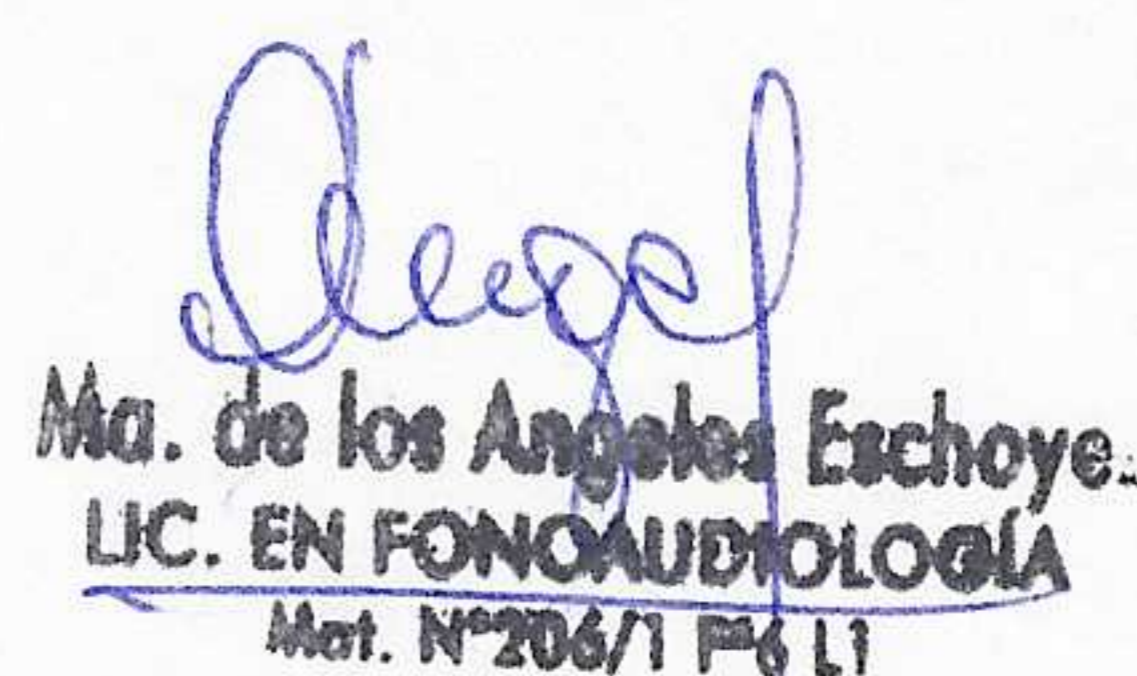 Ma. de los Angeles Eschoye..
LIC. EN FONOAUDIOLOGÍA
Mat. N°206/1 Fº6 L1